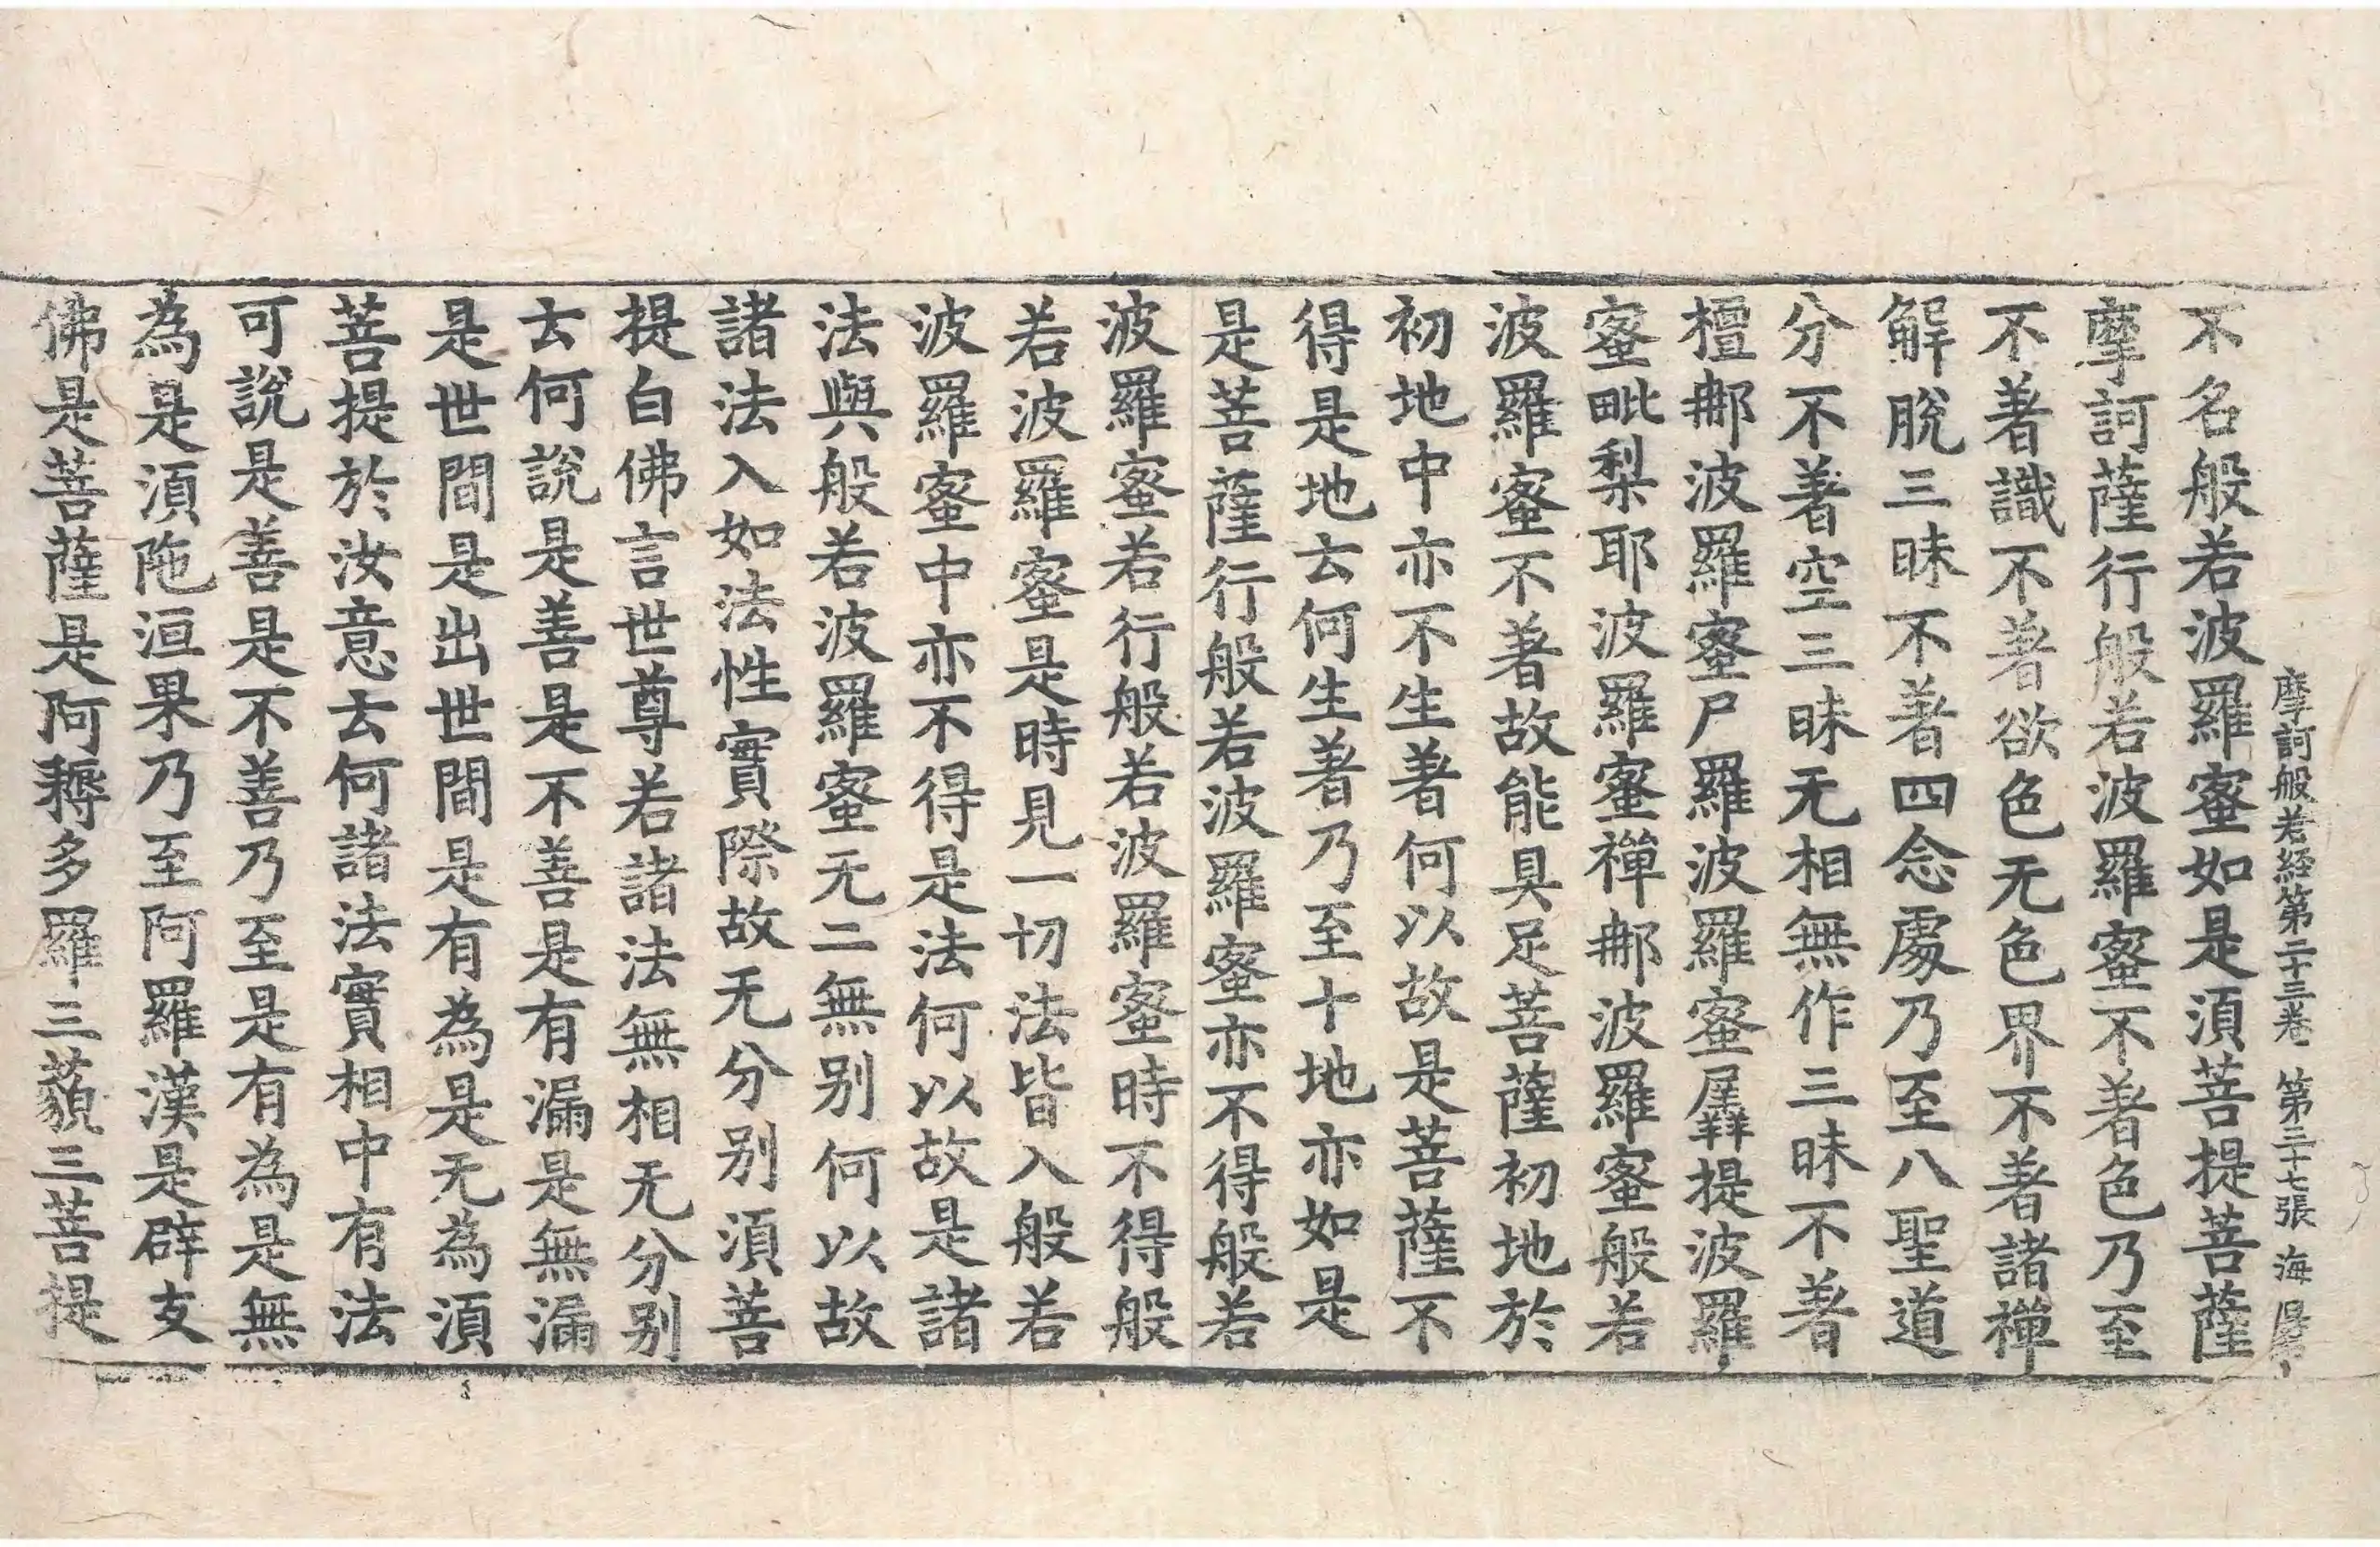 摩訶般若経第二十三卷 第三十七張 海
不名般若波羅蜜如是湏菩提菩薩
摩訶薩行般若波羅蜜不著色乃至
不著識不著欲色无色界不著諸禪
解脫三昧不著四念處乃至八聖道
分不著空三昧无相無作三昧不著
檀那波羅蜜尸羅波羅蜜羼提波羅
蜜毗梨耶波羅蜜禪那波羅蜜般若
波羅蜜不著故能具足菩薩初地於
初地中亦不生著何以故是菩薩不
得是地云何生著乃至十地亦如是
是菩薩行般若波羅蜜亦不得般若
波羅蜜若行般若波羅蜜時不得般
若波羅蜜是時見一切法皆入般若
波羅蜜中亦不得是法何以故是諸
法與般若波羅蜜无二無别何以故
諸法入如法性實際故无分别湏菩
提白佛言世尊若諸法無相无分别
云何說是善是不善是有漏是無漏
是世間是出世間是有為是无為湏
菩提於汝意云何諸法實相中有法
可說是善是不善乃至是有為是無
為是湏陁洹果乃至阿羅漢是辟支
佛是菩薩是阿耨多羅三藐三菩提